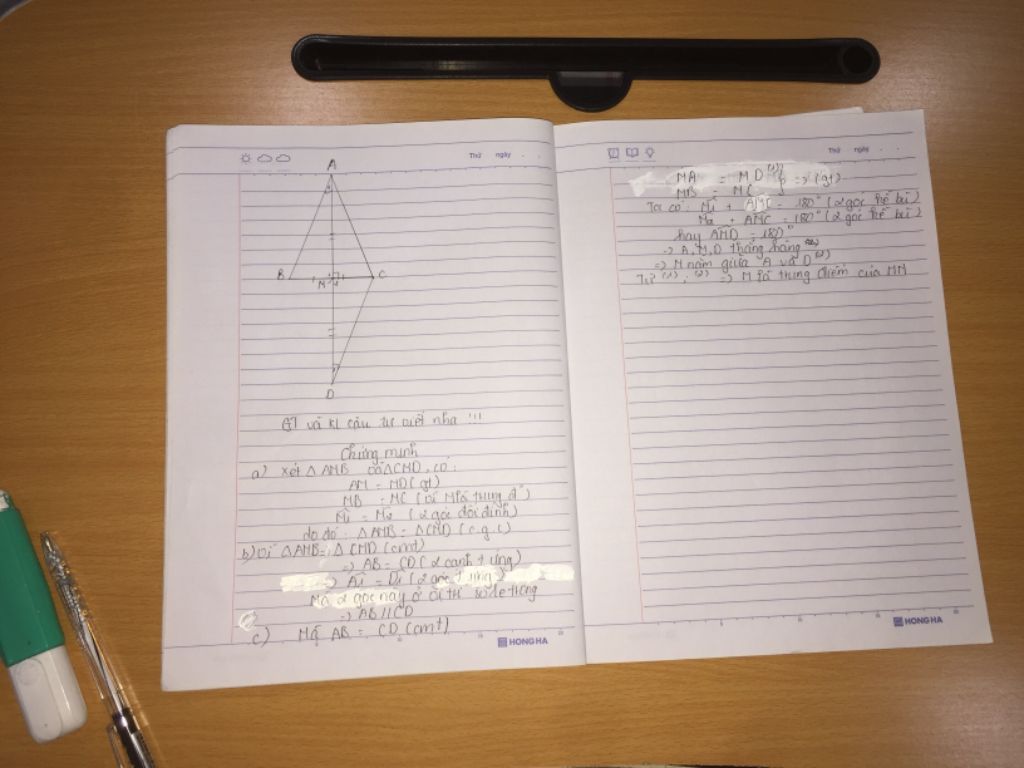 Thứ ngày
A
B
M
C
D
GT và KL cậu tự viết nha !!!
Chứng minh
a) Xét △ AMB và △CMD, có:
AM = MD (gt)
MB = MC (vì M là trung đ²)
M̂₁ = M̂₂ (2 góc đối đỉnh)
do đó: △AMB = △CMD (c.g.c)
b) Vì △AMB = △ CMD (cmt)
=> AB = CD (2 cạnh t ứng)
=> Â₁ = D̂₁ (2 góc t ứng)
Mà 2 góc này ở vị trí so le trong
=> AB // CD
c) Mà AB = CD (cmt)
HONG HA
Thứ ngày
MA = MD (1)
MB = MC } => (gt)
Ta có: M̂₁ + AMC = 180° (2 góc kề bù)
M̂₂ + AMC = 180° (2 góc kề bù)
hay AMD = 180°
=> A, M, D thẳng hàng
=> M nằm giữa A và D (2)
Từ (1), (2) => M là trung điểm của MM
HONG HA